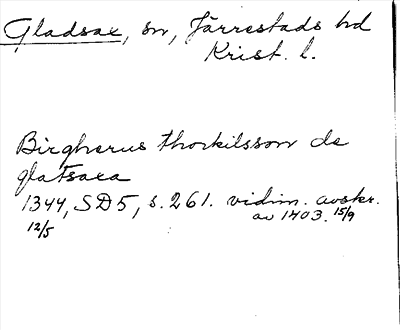 Gladsax, sn, Järrestads hd
Krist. l.
Birgherus thorkilsson de
glatsaxa
1344, SD5, s. 261. vidim. avskr.
12/5 av 1403. 15/9